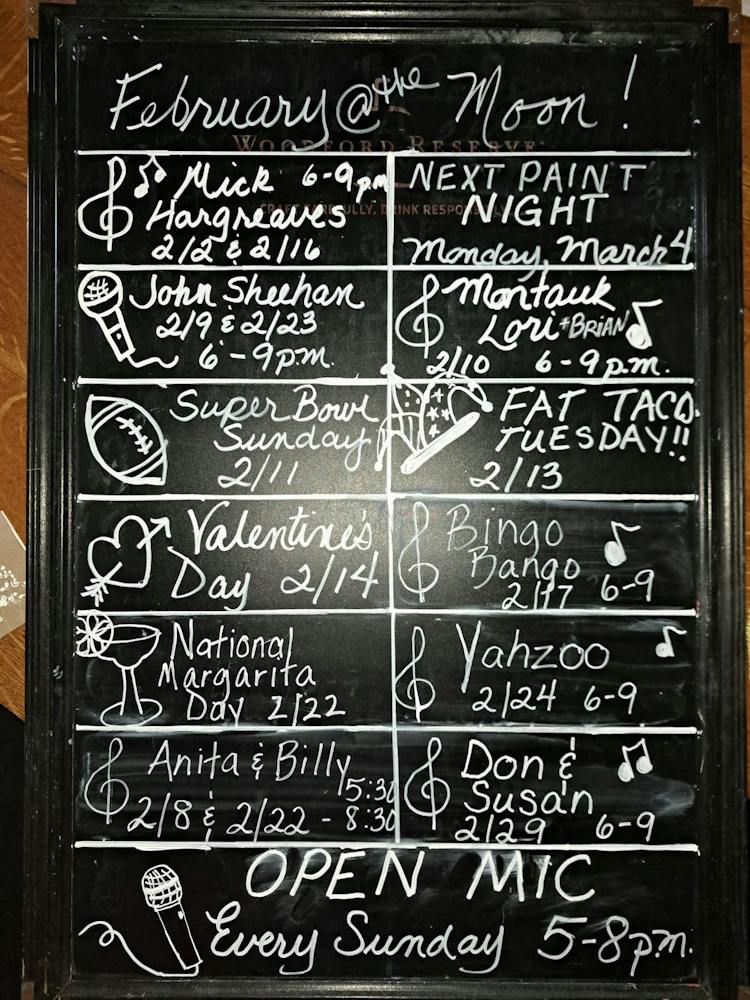 February @ the Moon!
WOODFORD RESERVE
Mick 6-9pm
Hargreaves
2/2 & 2/16
NEXT PAINT
NIGHT
Monday, March 4
John Sheehan
2/9 & 2/23
6-9p.m.
Montauk
Lori + BRIAN
2/10 6-9p.m.
Super Bowl
Sunday
2/11
FAT TACO
TUESDAY!!
2/13
Valentine's
Day 2/14
Bingo
Bango
2/17 6-9
National
Margarita
Day 2/22
Yahzoo
2/24 6-9
Anita & Billy
5:30
2/8 & 2/22 - 8:30
Don &
Susan
2/29 6-9
OPEN MIC
Every Sunday 5-8p.m.